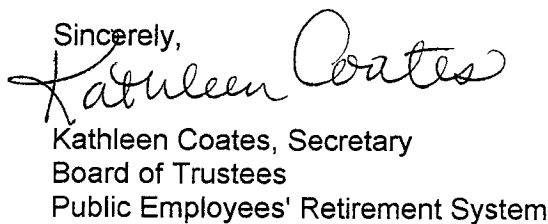 Sincerely,
Kathleen Coates
Kathleen Coates, Secretary
Board of Trustees
Public Employees' Retirement System